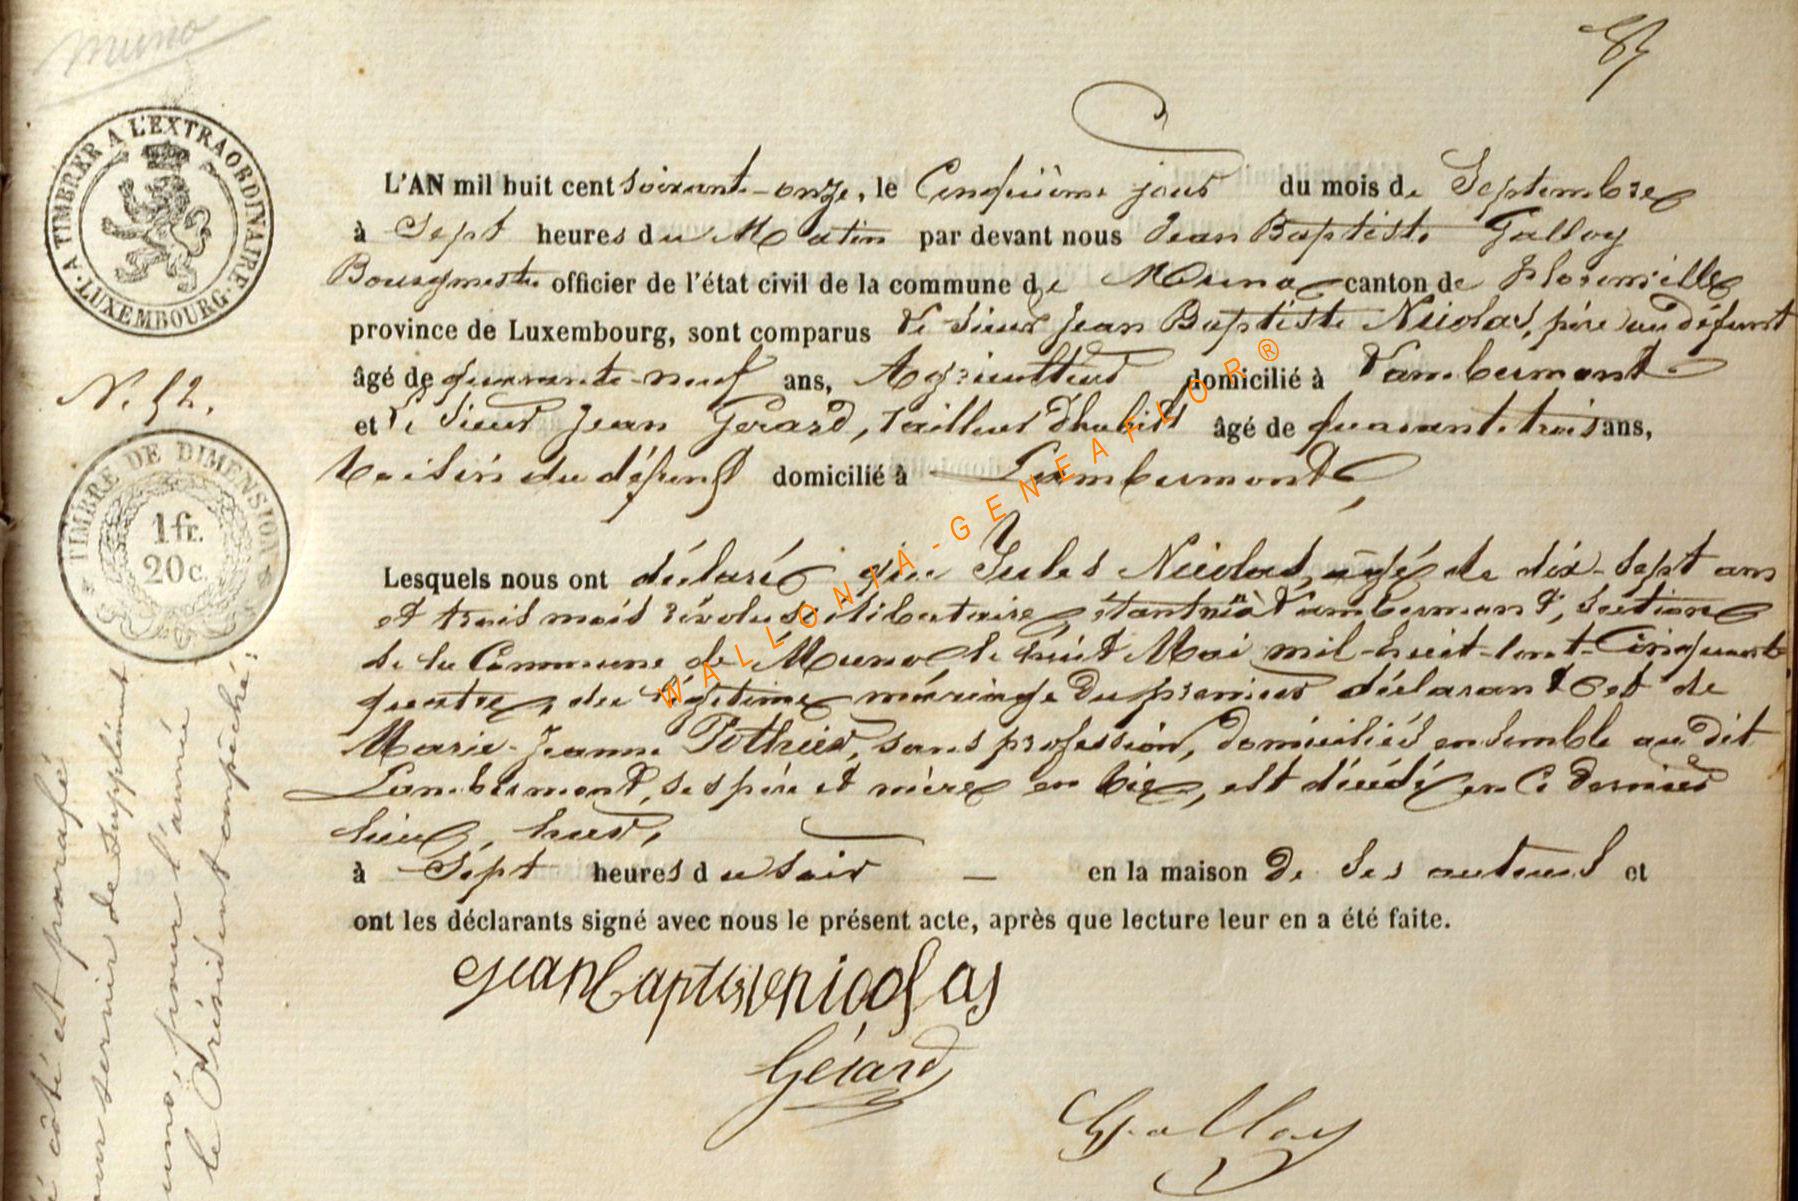 Muno
A TIMBRER A L'EXTRAORDINAIRE
· LUXEMBOURG ·
L'AN mil huit cent soixante-onze, le Cinquième jour du mois de Septembre
à Sept heures du Matin par devant nous Jean Baptiste Galloy
Bourgmestre officier de l'état civil de la commune de Muno canton de Florenville
province de Luxembourg, sont comparus le Sieur Jean Baptiste Nicolas, père au défunt
âgé de quarante-neuf ans, Agriculteur domicilié à Lambermont
N. 52.
et le Sieur Jean Gerard, tailleur d'habits âgé de quarante trois ans,
voisin du défunt domicilié à Lambermont
TIMBRE DE DIMENSION
1 fr.
20 c.
Lesquels nous ont déclaré que Jules Nicolas, agé de dix-sept ans
et trois mois révolus, célibataire, étant né à Lambermont, section
de la Commune de Muno le huit Mai mil-huit-cent-Cinquante
quatre, du légitime mariage du premier déclarant et de
Marie-Jeanne Pothier, sans profession, domiciliés ensemble au dit
Lambermont, ses père et mère en vie, est décédé en ce dernier
lieu, hier,
à Sept heures du soir — en la maison de ses auteurs et
ont les déclarants signé avec nous le présent acte, après que lecture leur en a été faite.
jean baptiste nicolas
Gérard
Galloy
côté et parafé
pour servir de Supplément
Muno, pour l'année
le Président empêché:
WALLONIA-GENEAFLOR ®